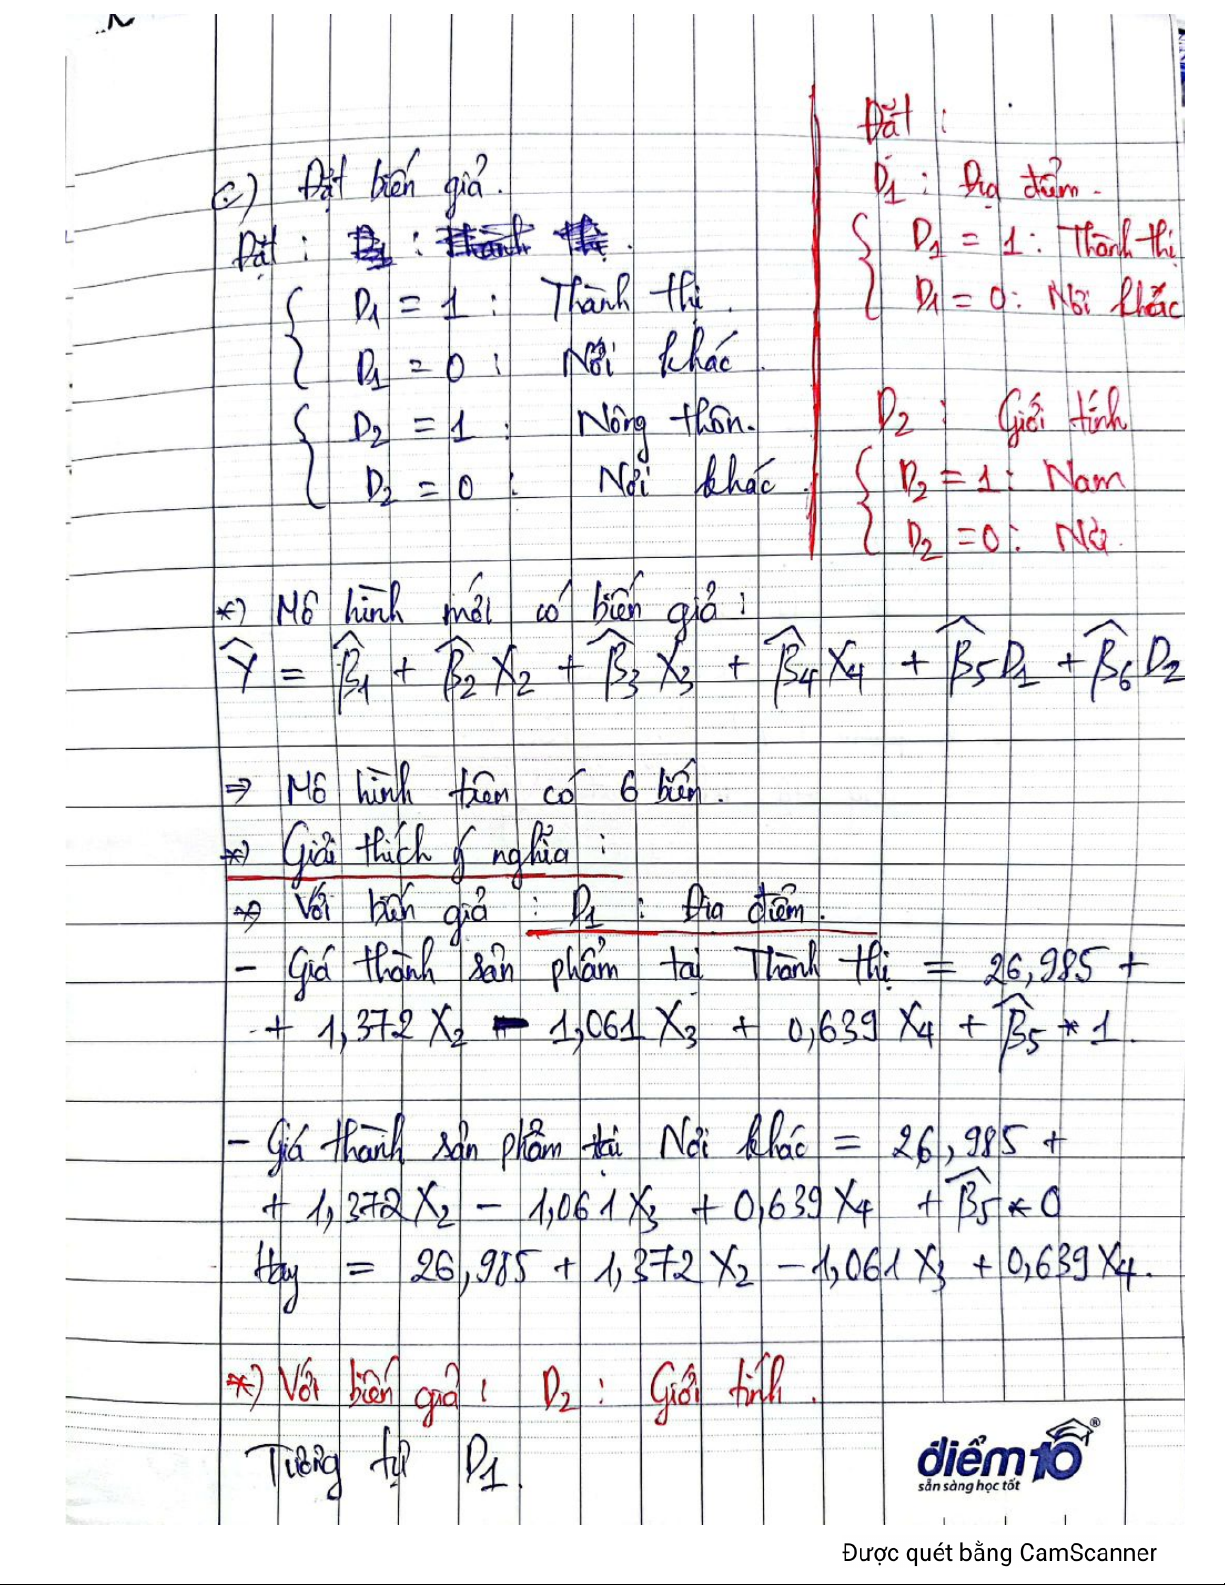 c) Đặt biến giả.
Đặt :
D1 = 1 : Thành thị.
D1 = 0 : Nơi khác.
D2 = 1 : Nông thôn.
D2 = 0 : Nơi khác.
Đặt :
D1 : Địa điểm.
D1 = 1 : Thành thị
D1 = 0 : Nơi khác
D2 : Giới tính
D2 = 1 : Nam
D2 = 0 : Nữ.
*) Mô hình mới có biến giả :
Ŷ = β̂1 + β̂2 X2 + β̂3 X3 + β̂4 X4 + β̂5 D1 + β̂6 D2
=> Mô hình trên có 6 biến.
*) Giải thích ý nghĩa :
=> Với biến giả : D1 : Địa điểm.
- Giá thành sản phẩm tại Thành thị = 26,985 +
+ 1,372 X2 - 1,061 X3 + 0,639 X4 + β̂5 * 1.
- Giá thành sản phẩm tại Nơi khác = 26,985 +
+ 1,372 X2 - 1,061 X3 + 0,639 X4 + β̂5 * 0
Hay = 26,985 + 1,372 X2 - 1,061 X3 + 0,639 X4.
*) Với biến giả : D2 : Giới tính.
Tương tự D1.
điểm10®
sẵn sàng học tốt
Được quét bằng CamScanner